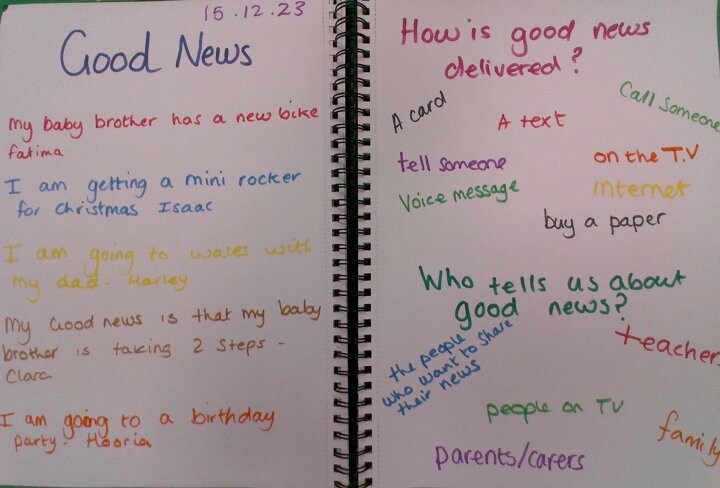 15.12.23
Good News
My baby brother has a new bike
fatima
I am getting a mini rocker
for christmas Isaac
I am going to wales with
my dad. Harley
My Good news is that my baby
brother is taking 2 steps -
Clara
I am going to a birthday
party. Hooria
How is good news
delivered?
A card
A text
Call someone
tell someone
on the T.V
Voice message
internet
buy a paper
Who tells us about
good news?
the people
who want to share
their news
teachers
people on TV
family
parents/carers